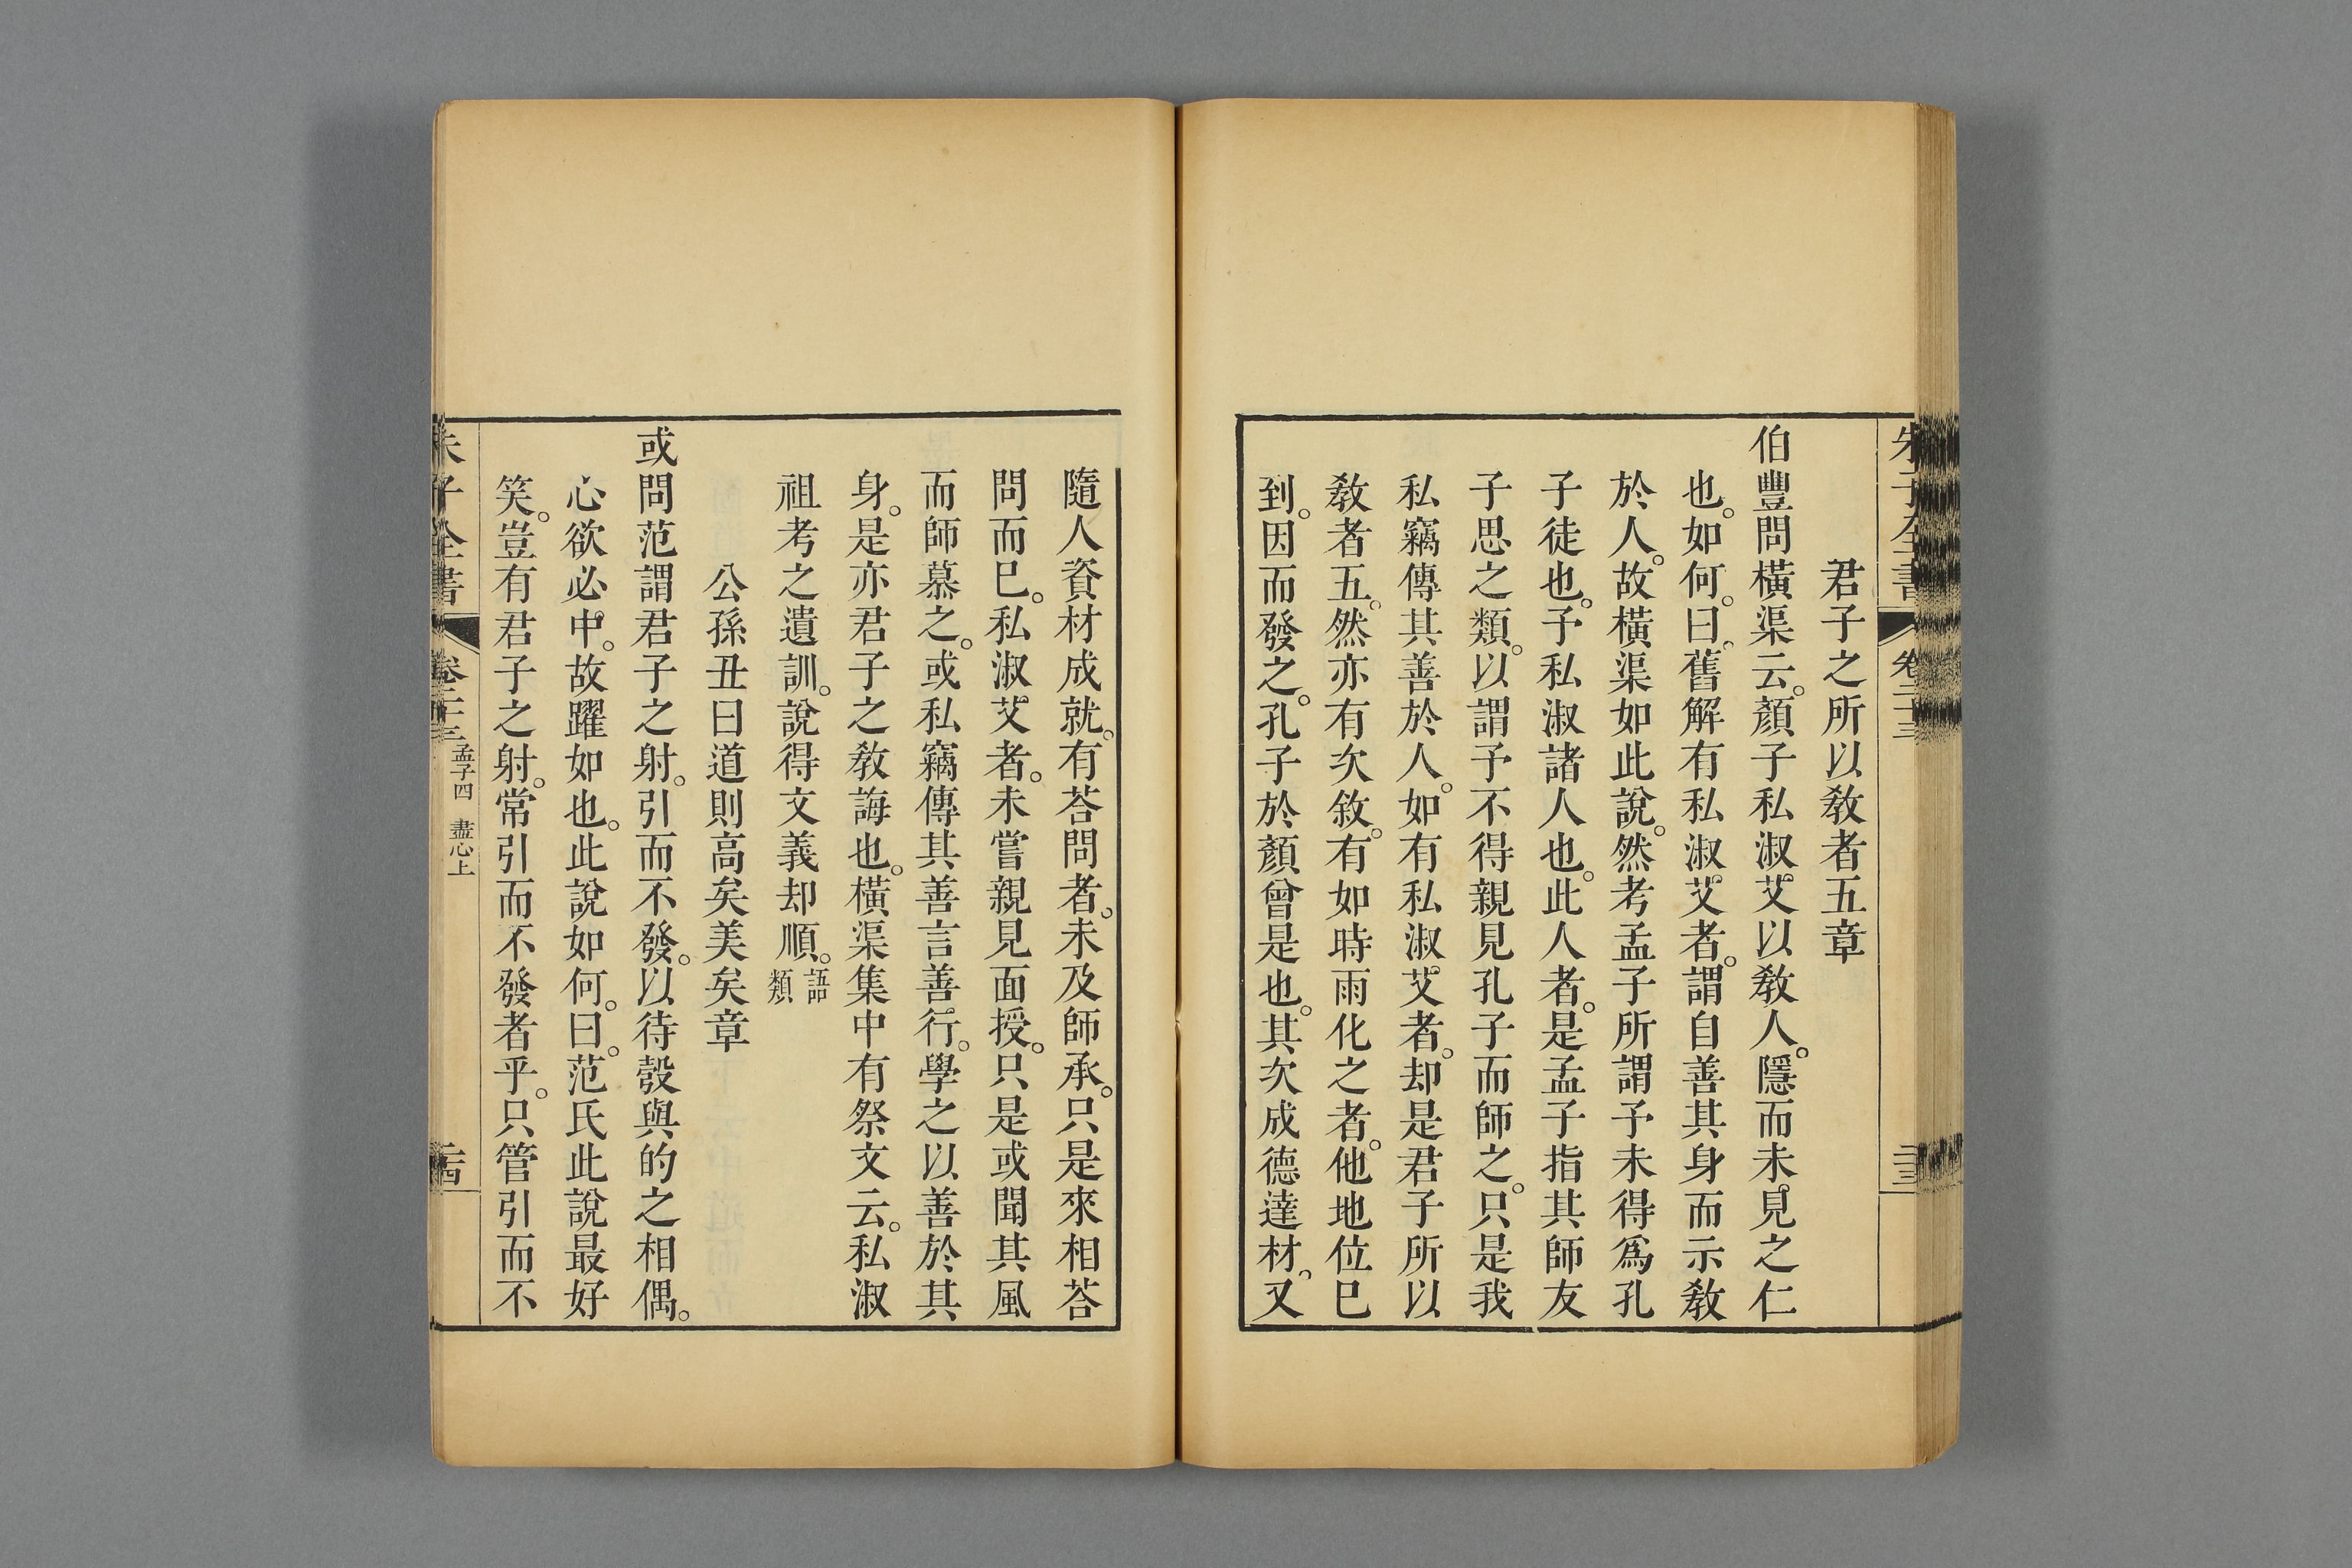 朱子全書 卷二十三 二十三
君子之所以敎者五章
伯豐問橫渠云。顏子私淑艾以敎人。隱而未見之仁
也。如何。曰。舊解有私淑艾者。謂自善其身而示敎
於人。故橫渠如此說。然考孟子所謂予未得爲孔
子徒也。予私淑諸人也。此人者。是孟子指其師友
子思之類。以謂予不得親見孔子而師之。只是我
私竊傳其善於人。如有私淑艾者。却是君子所以
敎者五。然亦有次敘。有如時雨化之者。他地位已
到。因而發之。孔子於顏曾是也。其次成德達材。又
隨人資材成就。有荅問者。未及師承。只是來相荅
問而已。私淑艾者。未嘗親見面授。只是或聞其風
而師慕之。或私竊傳其善言善行。學之以善於其
身。是亦君子之敎誨也。橫渠集中有祭文云。私淑
祖考之遺訓。說得文義却順。語類
公孫丑曰道則高矣美矣章
或問范謂君子之射。引而不發。以待彀與的之相偶。
心欲必中。故躍如也。此說如何。曰。范氏此說最好
笑。豈有君子之射。常引而不發者乎。只管引而不
朱子全書 卷二十三 孟子四 盡心上 二十四